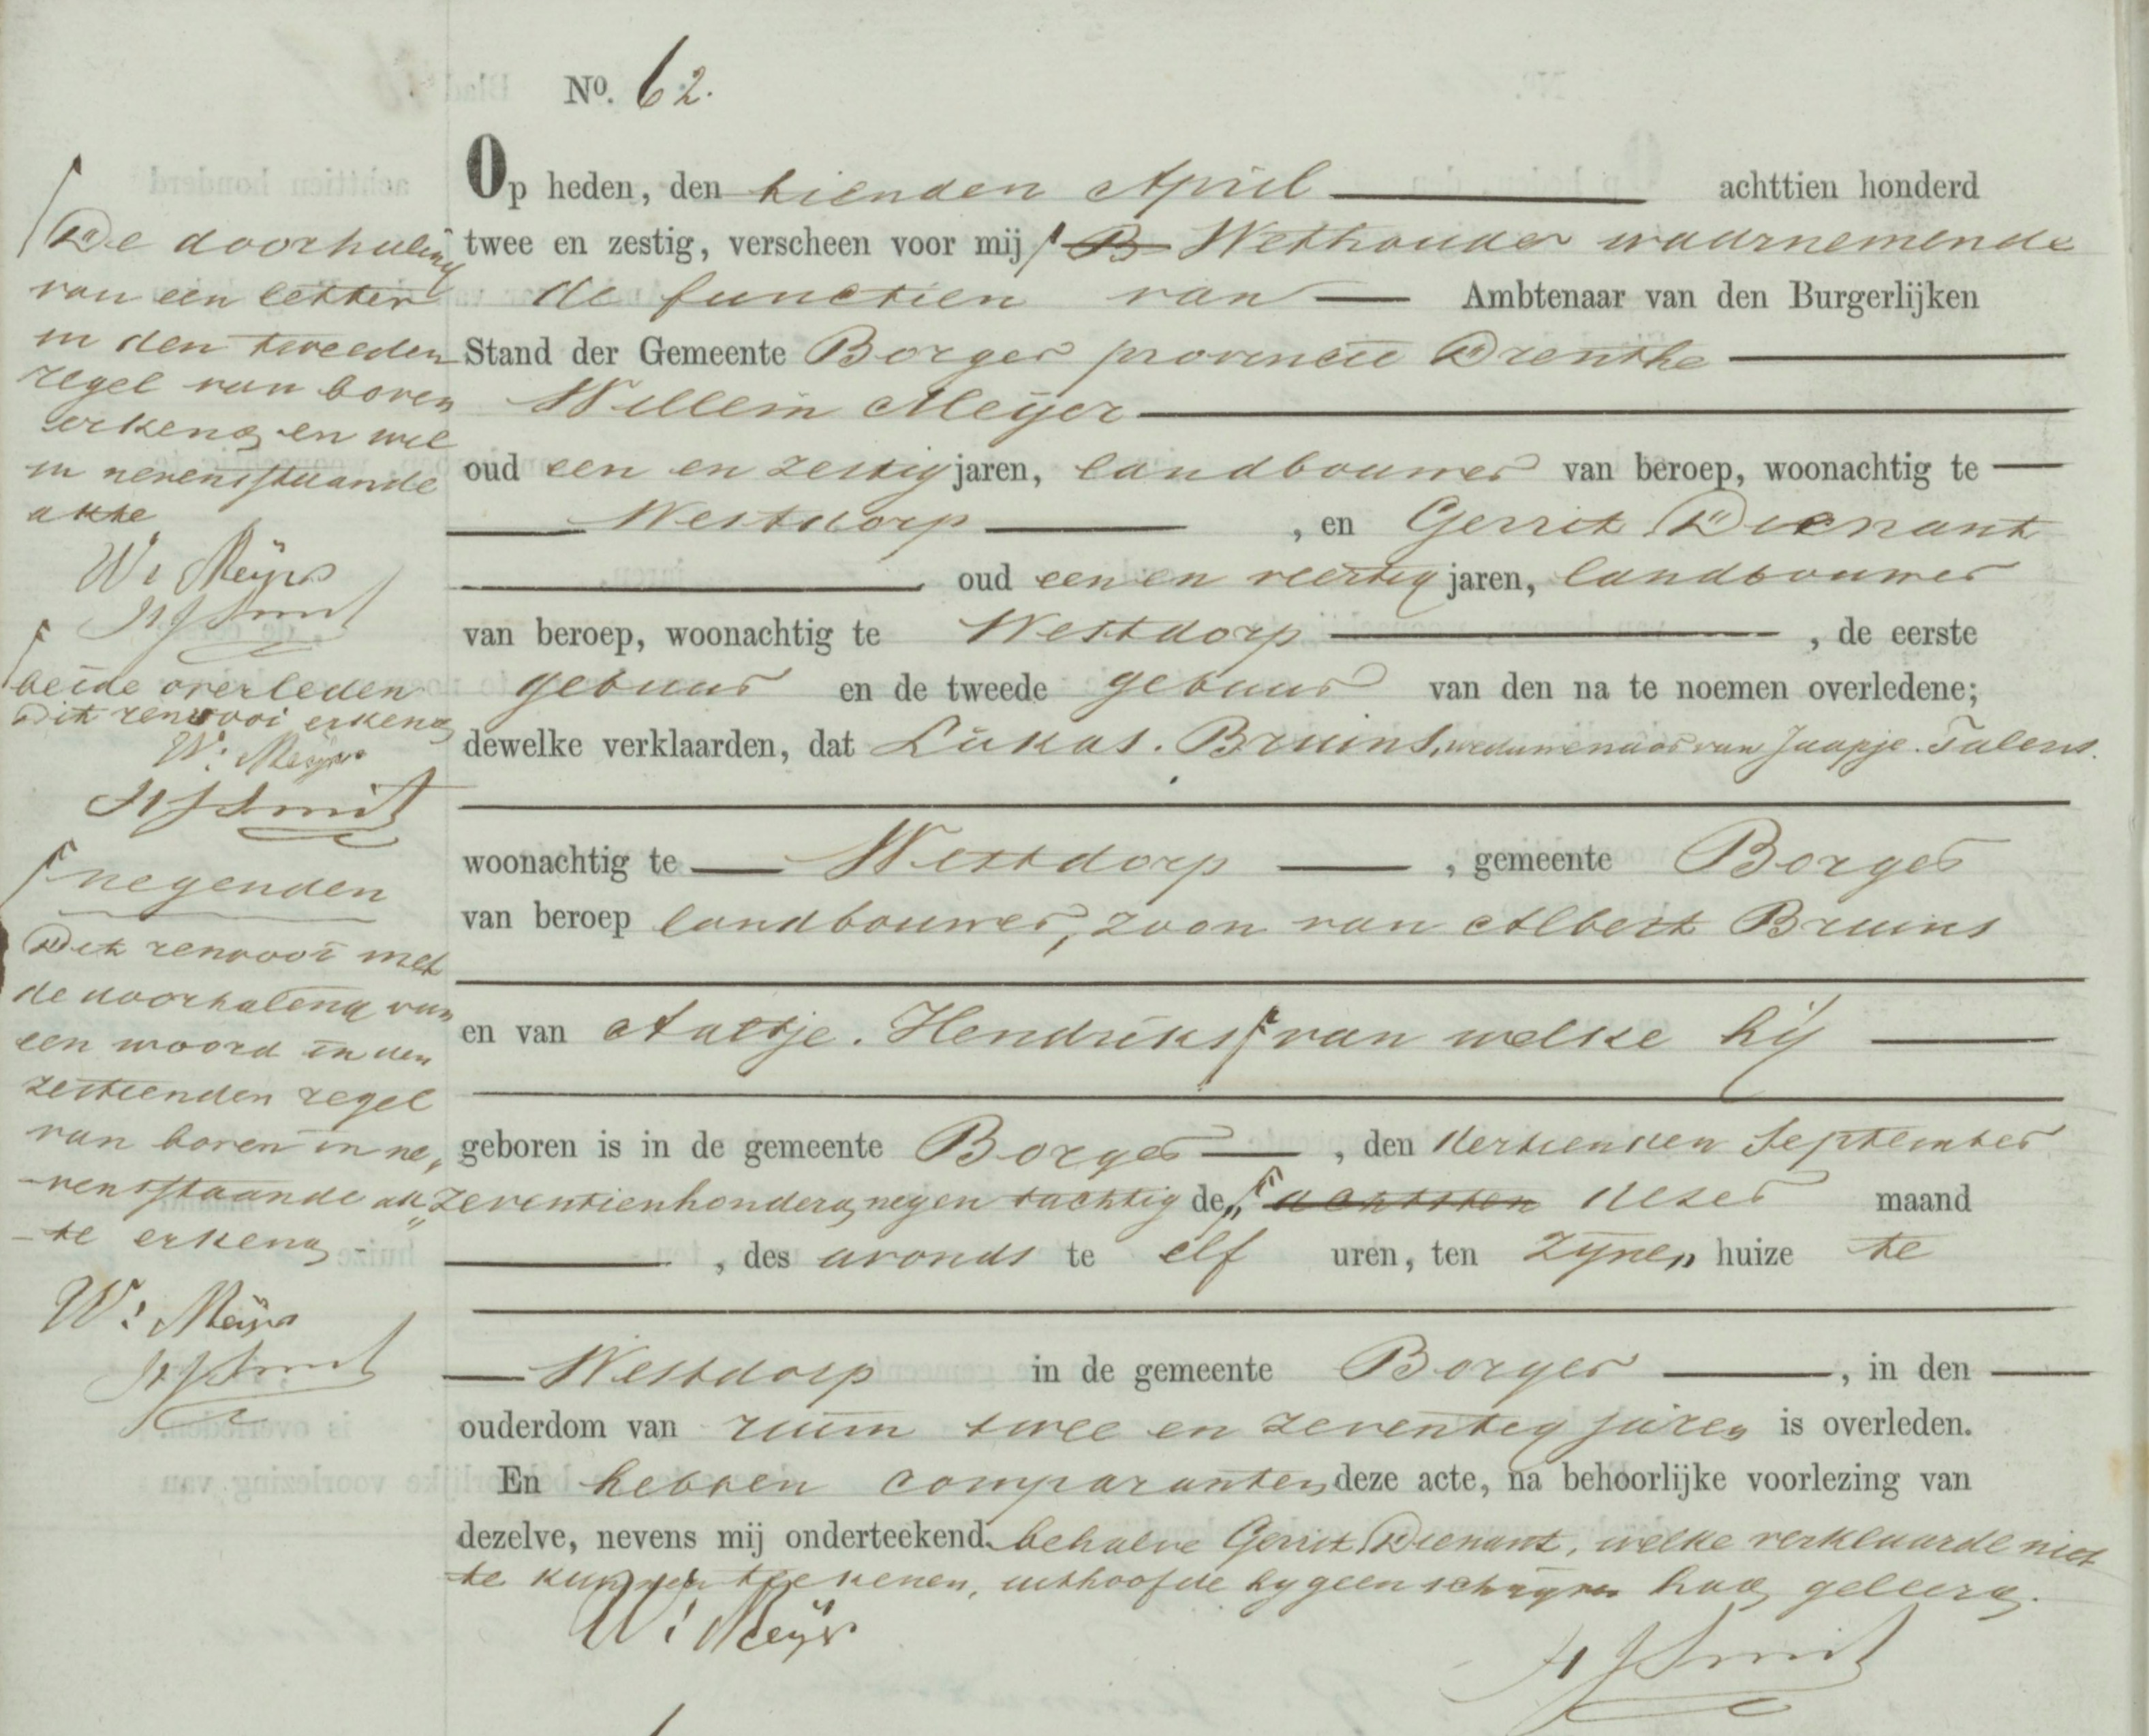 No. 62.
Op heden, den tienden April achttien honderd
twee en zestig, verscheen voor mij B Wethouder waarnemende
de functien van Ambtenaar van den Burgerlijken
Stand der Gemeente Borger provincie Drenthe
Willem Meijer
oud een en zestig jaren, landbouwer van beroep, woonachtig te
Westdorp, en Gerrit Dienant
oud een en veertig jaren, landbouwer
van beroep, woonachtig te Westdorp, de eerste
gebuur en de tweede gebuur van den na te noemen overledene;
dewelke verklaarden, dat Lukas. Bruins, weduwenaar van Jaapje. Talens.
woonachtig te Westdorp, gemeente Borger
van beroep landbouwer, zoon van Albert Bruins
en van Aaltje. Hendriks van welke hij
geboren is in de gemeente Borger, den dertienden September
zeventienhonderd negen tachtig de achtsten dezer maand
, des avonds te elf uren, ten zijnen huize te
Westdorp in de gemeente Borger, in den
ouderdom van ruim twee en zeventig jaren is overleden.
En hebben comparanten deze acte, na behoorlijke voorlezing van
dezelve, nevens mij onderteekend. behalve Gerrit Dienant, welke verklaarde niet
te kunnen teekenen, uithoofde hy geen schryven had geleerd.
W: Meijer
H J Smit
De doorhaling
van een letter
in den tweeden
regel van boven
erkend en wel
in nevensstaande
akte
W: Meijer
H J Smit
beide overleden
Dit renvooi erkend
W: Meijer
H J Smit
negenden
Dit renvooi met
de doorhaling van
een woord in den
zestienden regel
van boven in ne„
vensstaande ak„
-te erkend -
W: Meijer
H J Smit